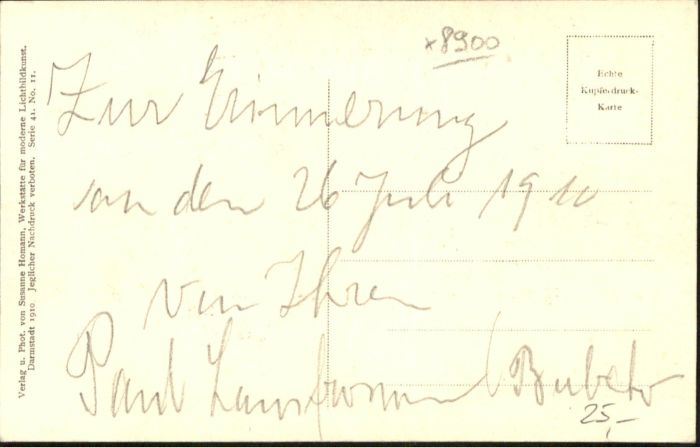 ×8900
Echte
Kupferdruck-
Karte
Zur Erinnerung
an den 26 Juli 1910
von Ihrem
Paul
25,-
Verlag u. Phot. von Susanne Homann, Werkstätte für moderne Lichtbildkunst.
Darmstadt 1910 Jeglicher Nachdruck verboten. Serie 41. No. 11.